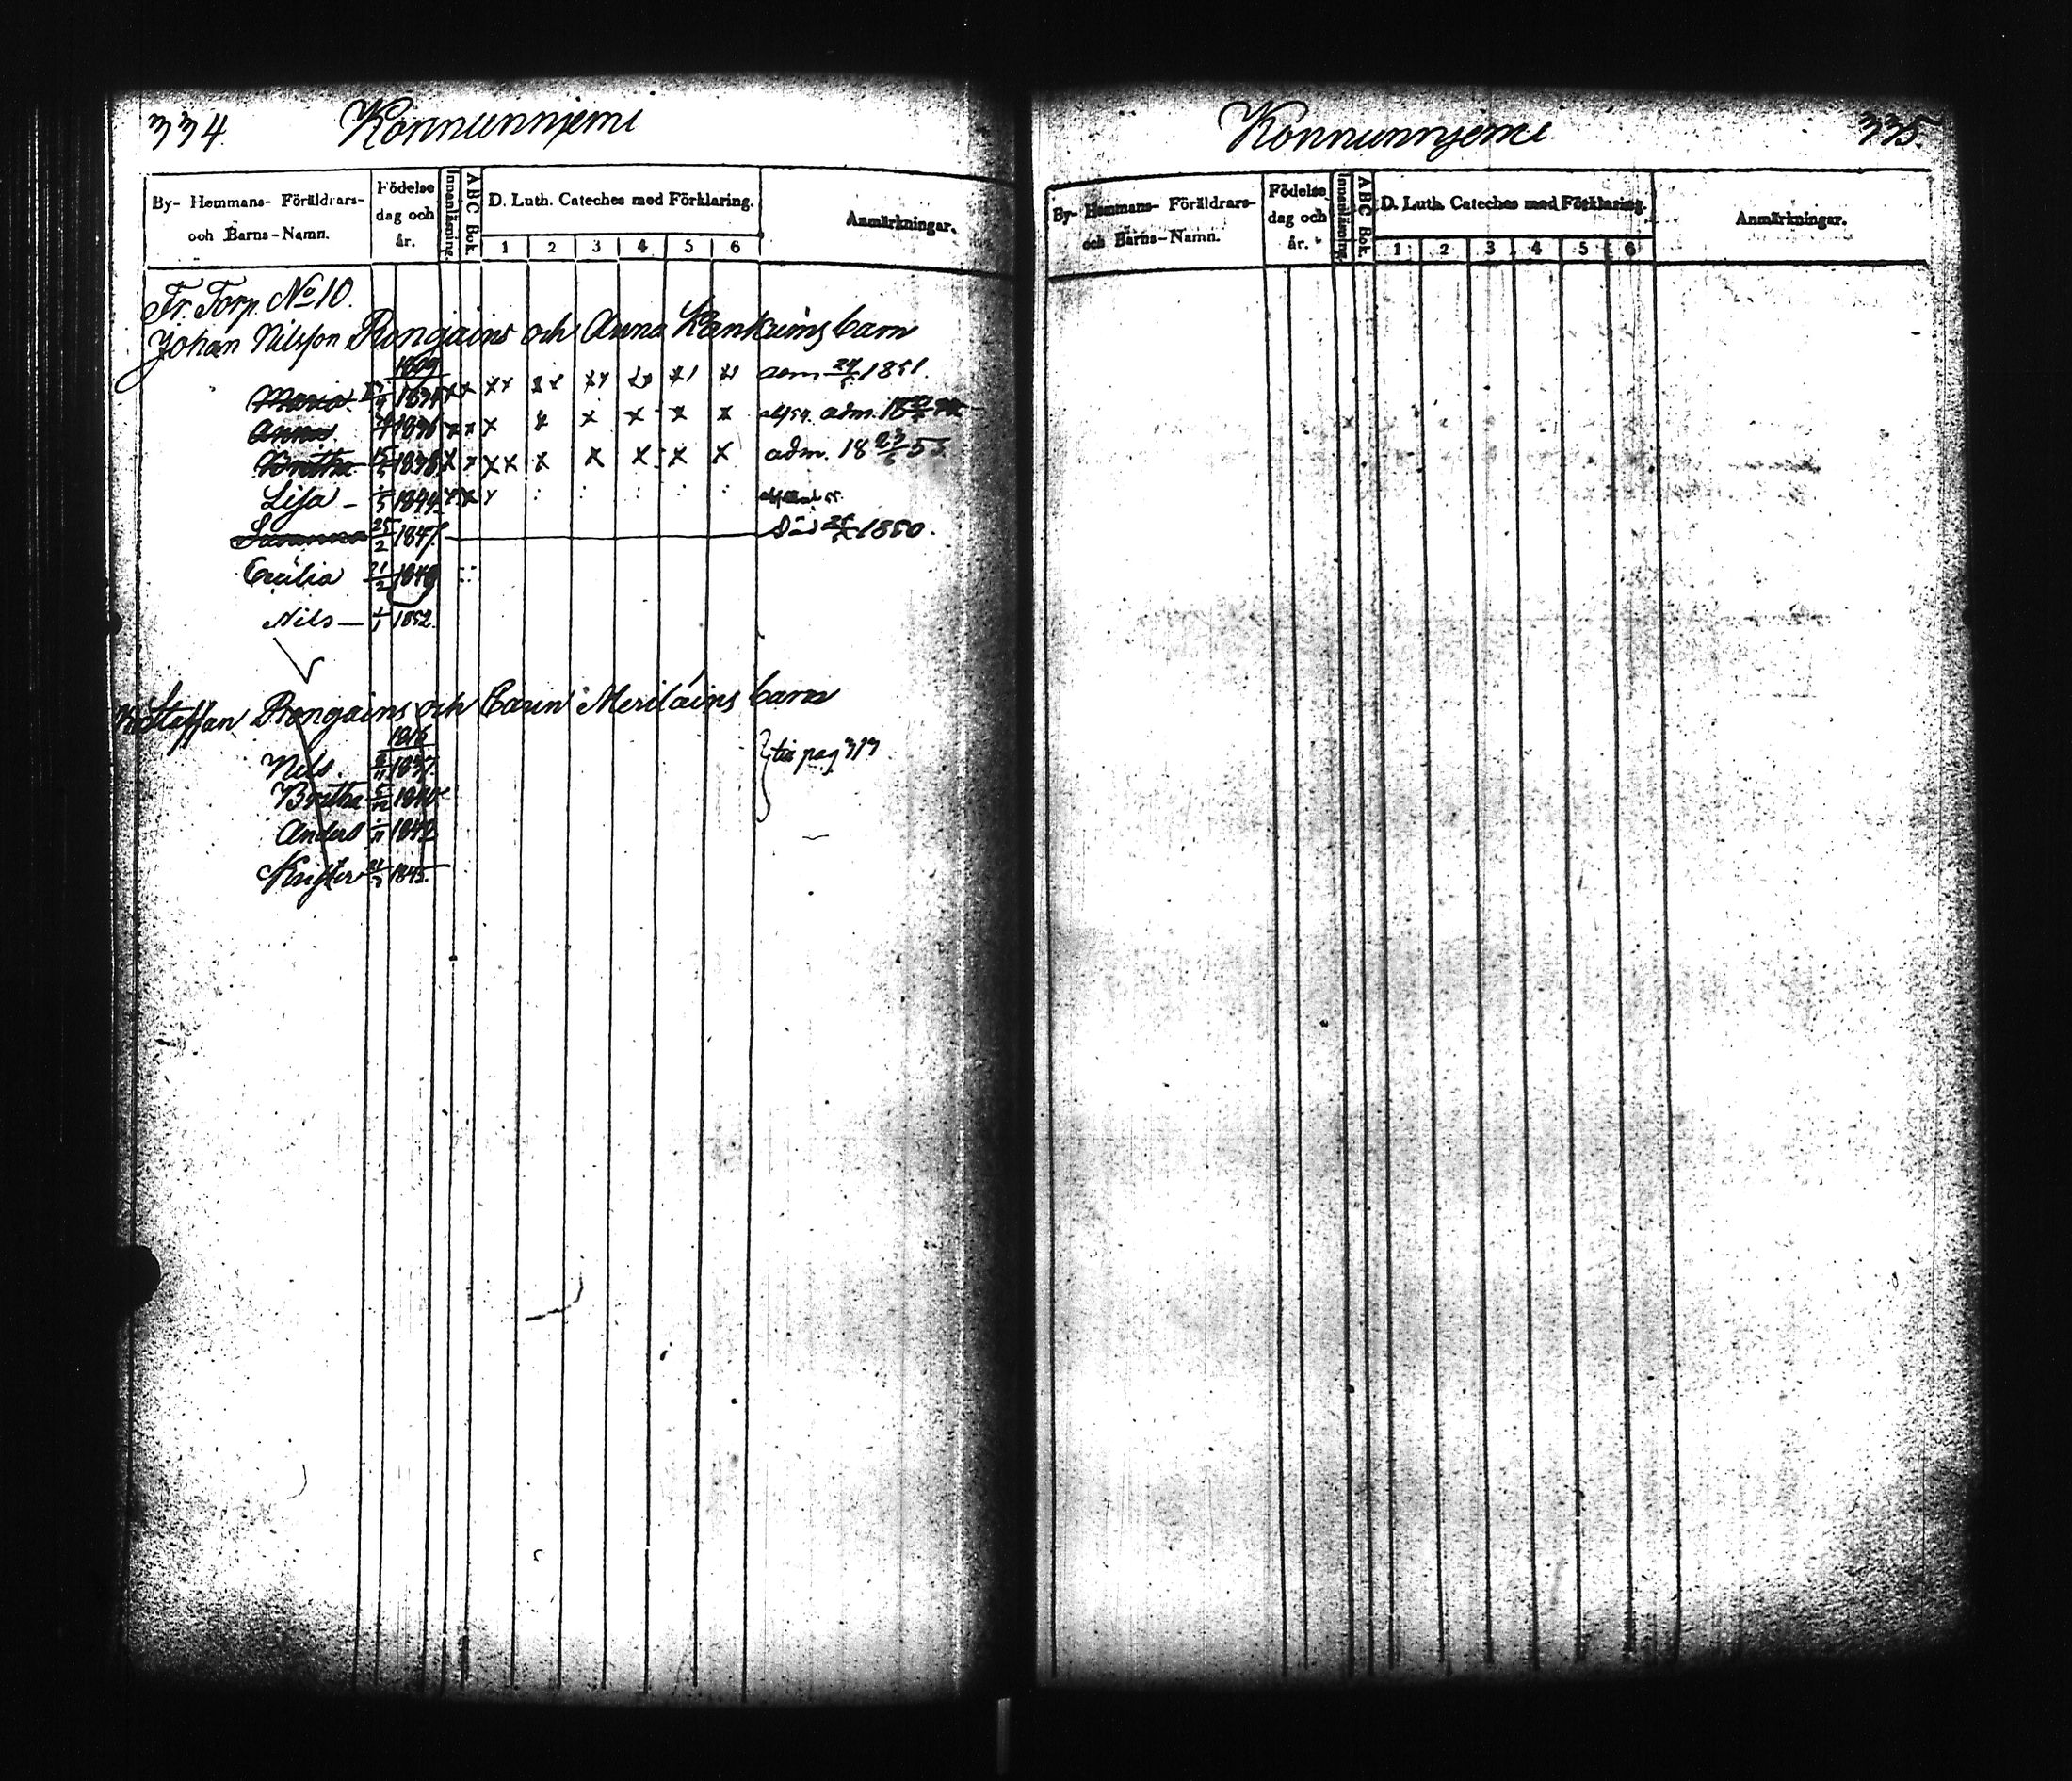 334
Konnunnjemi
By- Hemmans- Föräldrars-
och Barns-Namn.
Födelse
dag och
år.
Innanläsning.
ABC Bok.
D. Luth. Cateches med Förklaring.
1 2 3 4 5 6
Anmärkningar.
Fr. Torp. No 10.
Johan Nilsson Rongains och Anna barn
1809
Maria 1834 x x
Anna 1836 x x x x x x x x adm.
Britha 15 1838 x x x x x x x x x adm. 18 23/6 55
Lisa - 1844
Susanna 25/2 1847 Död 1850.
Cecilia 21/2 1849
Nils - 1852
Staffan Rongains och Carin Meriläins barn
1816
Nils 1837
Britha 1840
Anders 1842
Krister 1845
pag 313
Konnunnjemi
335.
By- Hemmans- Föräldrars-
och Barns-Namn.
Födelse
dag och
år.
Innanläsning.
ABC Bok.
D. Luth. Cateches med Förklaring.
1 2 3 4 5 6
Anmärkningar.